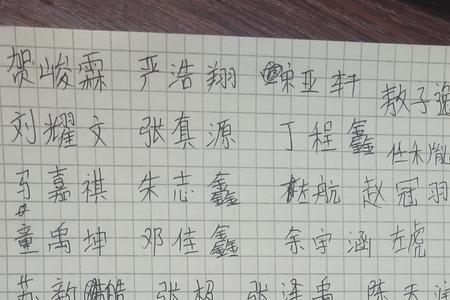 贺峻霖 严浩翔 陈亚轩 敖子逸
刘耀文 张真源 丁程鑫
马嘉祺 朱志鑫 航 赵冠羽
童禹坤 邓佳鑫 余宇涵 左航
苏新皓 张极 张泽禹 陈天润